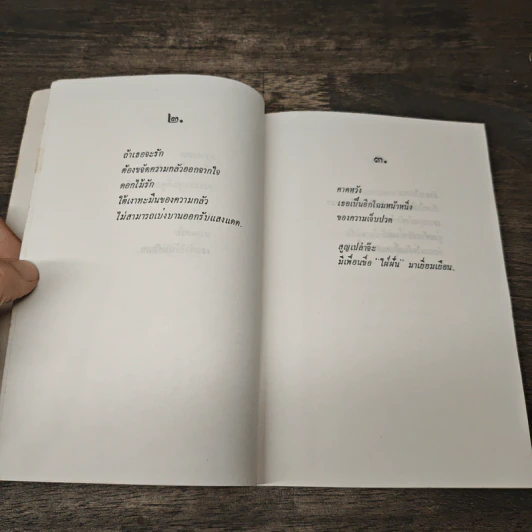 ๒.
ถ้าเธอจะรัก
ต้องขจัดความกลัวออกจากใจ
ดอกไม้รัก
ใต้เงาทะมึนของความกลัว
ไม่สามารถเบ่งบานออกรับแสงแดด.
๓.
คาดหวัง
เธอเป็นอีกโฉมหน้าหนึ่ง
ของความเจ็บปวด
สูญเปล่าจ๊ะ
มีเพื่อนชื่อ "ใฝ่ฝัน" มาเยี่ยมเยือน.